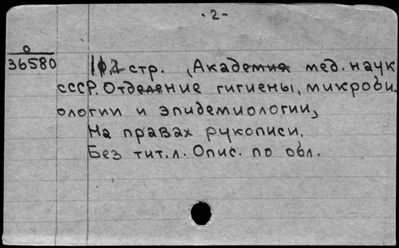 -2-
0
36580
стр. (Академия мед. наук
СССР. Отделение гигиены, микроби-
ологии и эпидемиологии)
На правах рукописи.
Без тит.л. Опис. по обл.